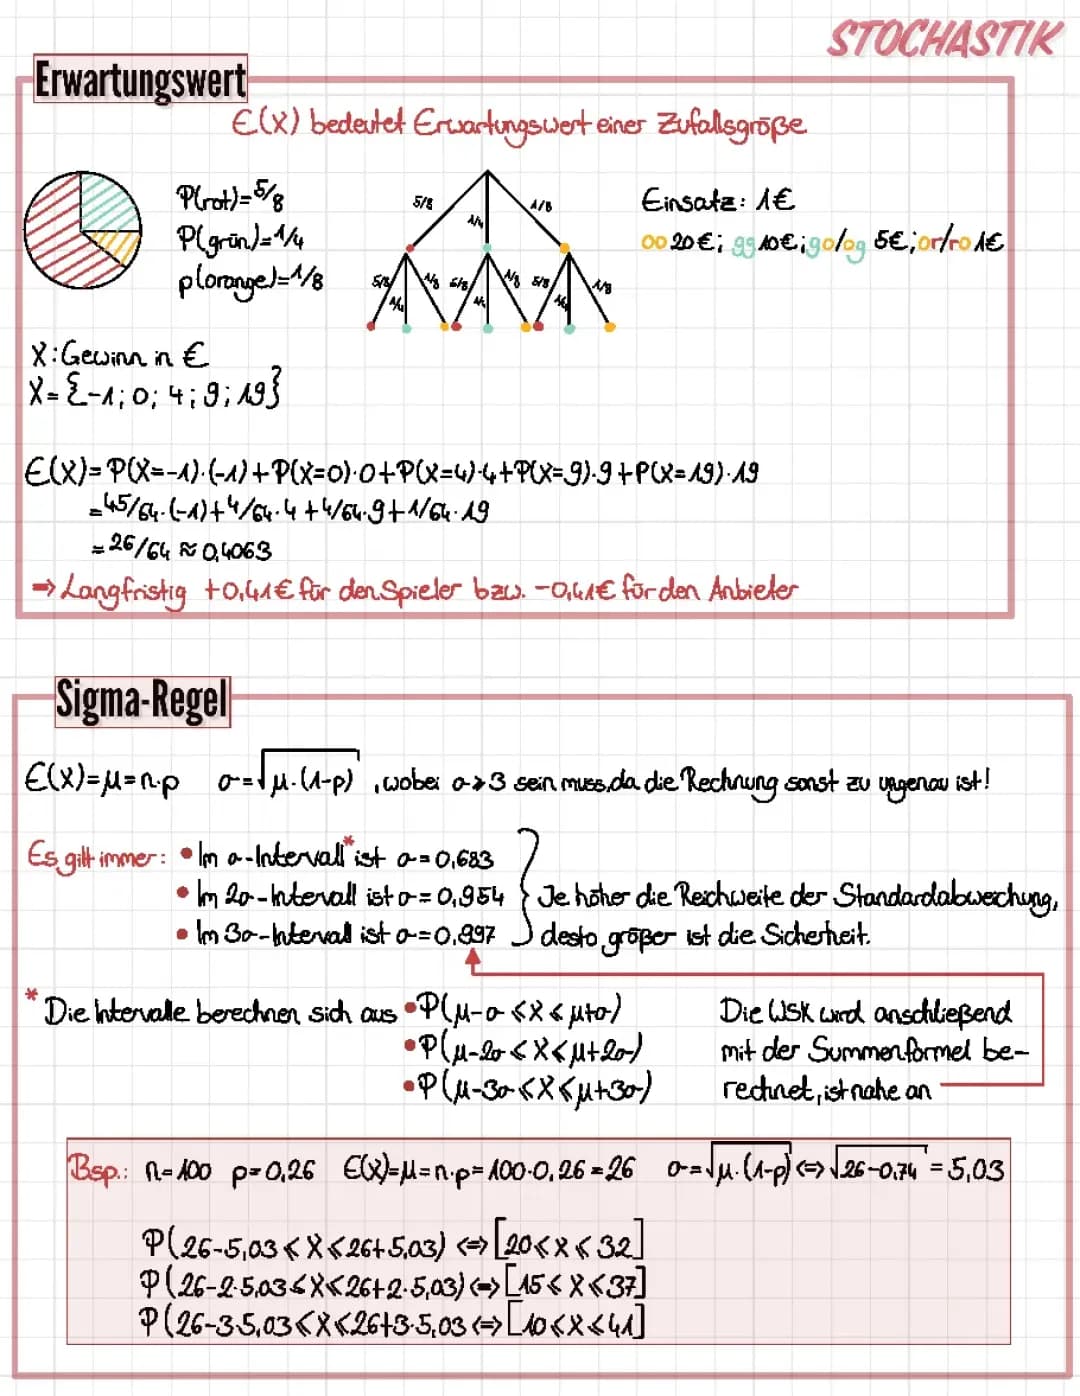 STOCHASTIK
Erwartungswert
E(X) bedeutet Erwartungswert einer Zufallsgröße
P(rot)=5/8
P(grün)=1/4
p(orange)=1/8
5/8 1/4 1/8
5/8 1/4 1/8 5/8 1/4 1/8 5/8 1/4 1/8
Einsatz: 1€
oo 20€; gg 10€; go/og 5€; or/ro 1€
X: Gewinn in €
X={-1; 0; 4; 9; 19}
E(X)= P(X=-1)·(-1)+P(X=0)·0+P(X=4)·4+P(X=9)·9+P(X=19)·19
=45/64·(-1)+4/64·4+4/64·9+1/64·19
=26/64≈0,4063
→ Langfristig +0,41€ für den Spieler bzw. -0,41€ für den Anbieter
Sigma-Regel
E(X)=µ=n·p σ=√µ·(1-p) , wobei σ>3 sein muss, da die Rechnung sonst zu ungenau ist!
Es gilt immer: • Im σ-Intervall* ist σ=0,683
• Im 2σ-Intervall ist σ=0,954
• Im 3σ-Intervall ist σ=0,997
Je höher die Reichweite der Standardabweichung,
desto größer ist die Sicherheit.
* Die Intervalle berechnen sich aus • P(µ-σ≤X≤µ+σ)
• P(µ-2σ≤X≤µ+2σ)
• P(µ-3σ≤X≤µ+3σ)
Die WSK wird anschließend
mit der Summenformel be-
rechnet, ist nahe an
Bsp.: n=100 p=0,26 E(X)=µ=n·p=100·0,26=26 σ=√µ·(1-p) ⇔ √26-0,74 = 5,03
P(26-5,03≤X≤26+5,03) ⇔ [20≤X≤32]
P(26-2·5,03≤X≤26+2·5,03) ⇔ [15≤X≤37]
P(26-3·5,03≤X≤26+3·5,03 ⇔ [10≤X≤41]